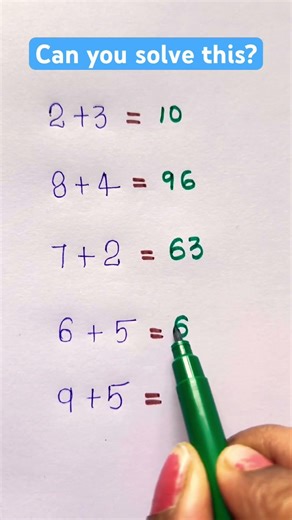 Can you solve this?
2+3 = 10
8+4 = 96
7+2 = 63
6+5 = 6
9+5 =